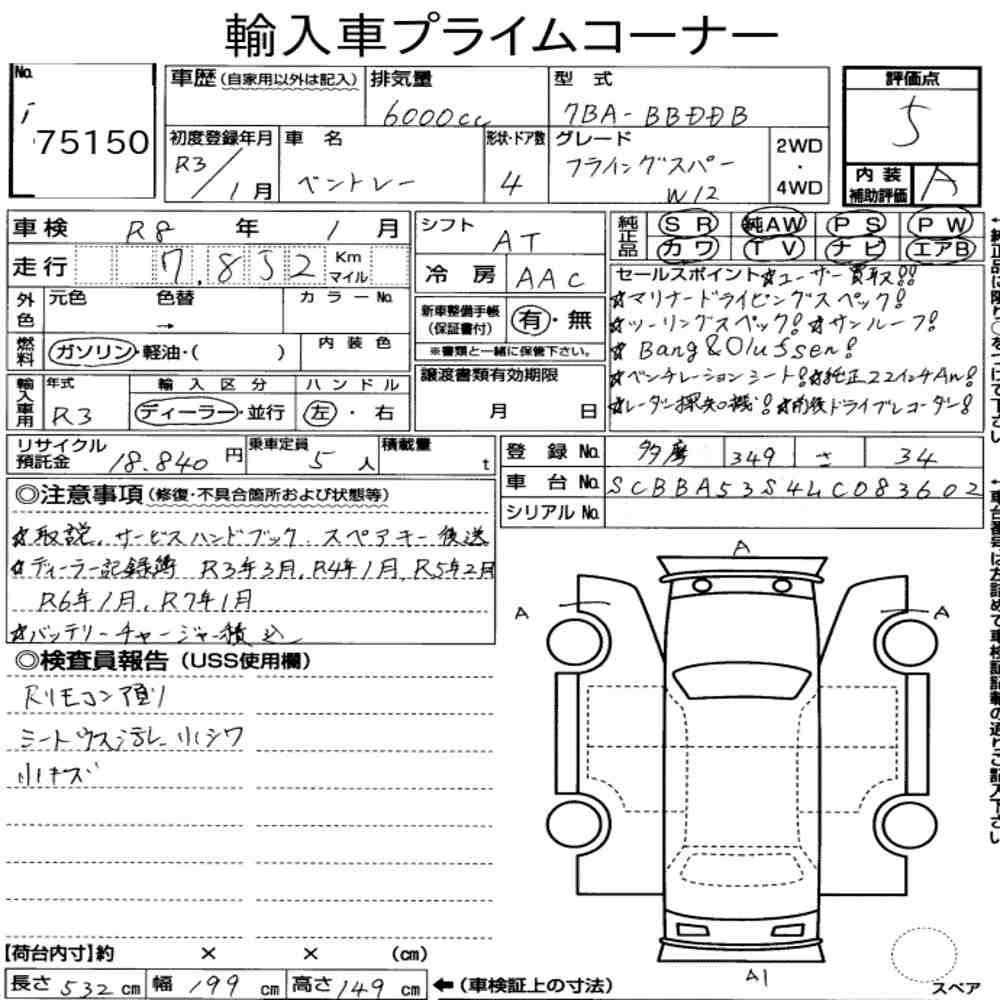 輸入車プライムコーナー
No. i 75150
車歴(自家用以外は記入)
排気量 6000cc
型式 7BA-BBDDB
評価点 5
内装補助評価 A
初度登録年月 R3/1月
車名 ベントレー
形状・ドア数 4
グレード フライングスパー W12
2WD・4WD
車検 R8年1月
シフト AT
純正品 SR 純AW PS PW
カワ TV ナビ エアB
走行 7,852 Km マイル
冷房 AAC
外色 元色 色替 → カラーNo.
燃料 ガソリン・軽油・( ) 内装色
新車整備手帳(保証書付) 有・無
※書類と一緒に保管下さい。
セールスポイント☆ユーザー買取!!
☆マリナードライビングスペック!
☆ツーリングスペック!☆サンルーフ!
☆Bang&Olufsen!
☆ベンチレーションシート!☆純正22インチAW!
☆レーダー探知機!☆前後ドライブレコーダー!
輸入車用 年式 R3
輸入区分 ディーラー・並行
ハンドル 左・右
譲渡書類有効期限 月 日
リサイクル預託金 18.840円
乗車定員 5人
積載量 t
登録No. 多摩 349 さ 34
車台No. SCBBA53S4LC083602
シリアルNo.
◎注意事項(修復・不具合箇所および状態等)
☆取説.サービスハンドブック.スペアキー後送
☆ディーラー記録簿 R3年3月,R4年1月,R5年2月
R6年1月,R7年1月
☆バッテリーチャージャー積込
◎検査員報告(USS使用欄)
Rリモコン有り
シートウス汚レ 小シワ
小キズ
A
A
A
A1
スペア
【荷台内寸】約 × × (cm)
長さ532cm 幅199cm 高さ149cm ←(車検証上の寸法)
←純正品に限り○をつけて下さい
←車台番号は左詰めで車検証記載の通りご記入下さい